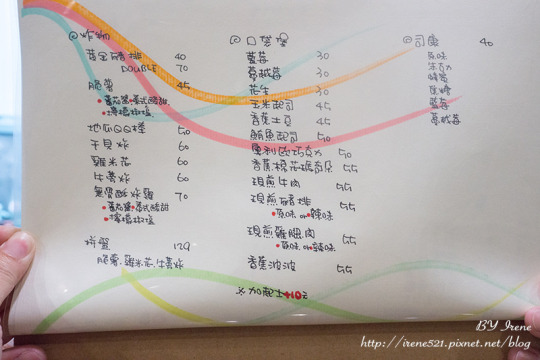 ◎炸物
黃金豬排 40
DOUBLE 70
脆薯 45
•蕃茄醬•泰式酸甜
•檸檬椒塩
地瓜QQ棒 50
干貝炸 60
雞米花 60
牛蒡炸 60
無骨酥炸雞 70
•蕃茄醬•泰式酸甜
•檸檬椒塩
拼盤 129
脆薯、雞米花、牛蒡炸
◎口袋堡
藍莓 30
蔓越莓 30
花生 30
玉米起司 45
香蕉土豆 45
鮪魚起司 50
奧利歐巧克力 50
香蕉棉花碳奇朵 55
現煎牛肉 55
現煎豬排 55
•原味 or •辣味
現煎雞腿肉 55
•原味 or •辣味
香蕉波波 55
※加起士+10元
◎司康 40
原味
朱古力
蜂蜜
焦糖
藍莓
蔓越莓
BY Irene
http://irene521.pixnet.net/blog